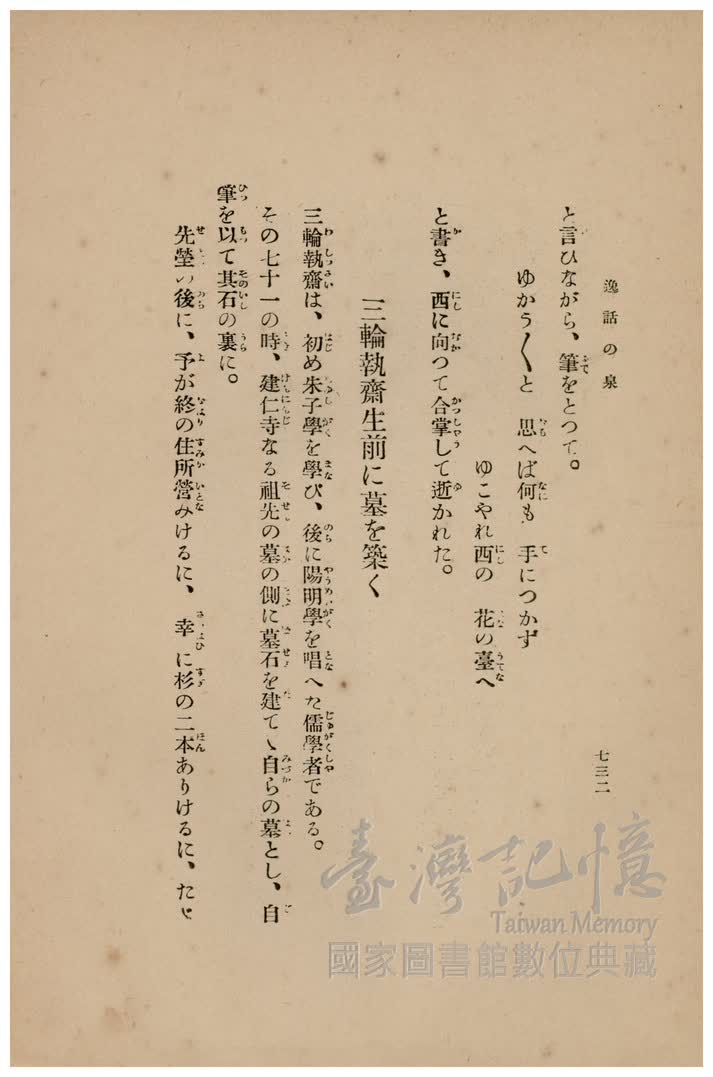 逸話の泉
七三二
と言ひながら、筆をとつて。
ゆかう〱と 思へば何も 手につかず
ゆこやれ西の 花の臺へ
と書き、西に向つて合掌して逝かれた。
三輪執齋生前に墓を築く
三輪執齋は、初め朱子學を學び、後に陽明學を唱へた儒學者である。
その七十一の時、建仁寺なる祖先の墓の側に墓石を建てゝ自らの墓とし、自
筆を以て其石の裏に。
先塋の後に、予が終の住所營みけるに、幸に杉の二本ありけるに、たと
臺灣記憶
Taiwan Memory
國家圖書館數位典藏